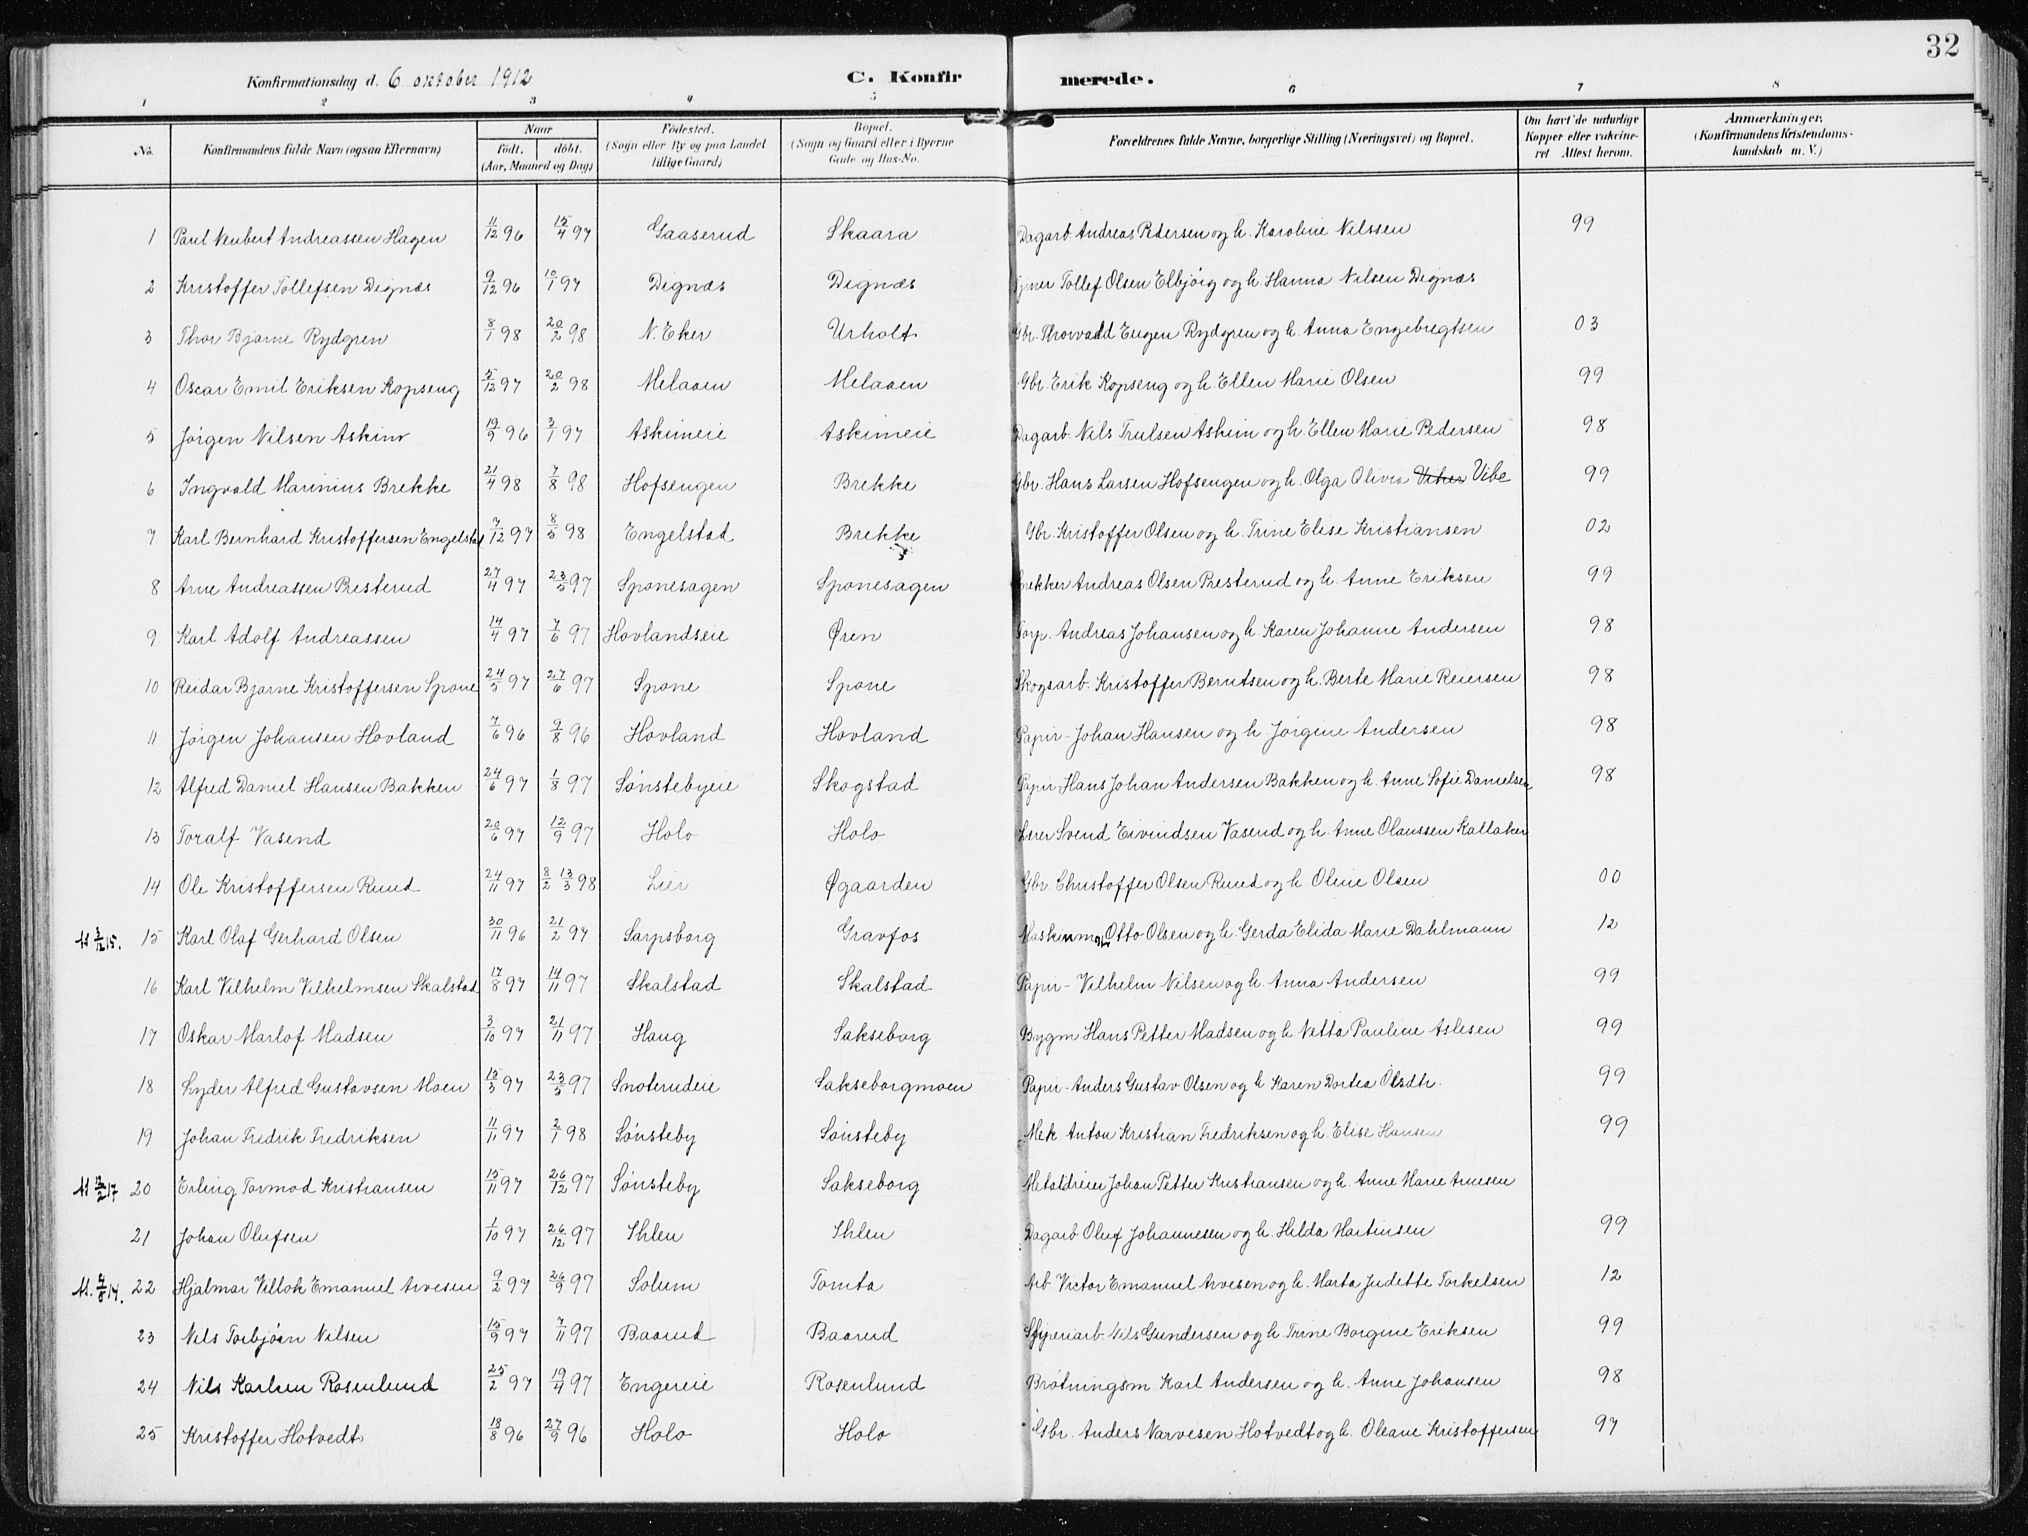 32
Konfirmationsdag d. 6 oktober 1912 C. Konfirmerede.
1 2 3 4 5 6 7 8
No. Konfirmandens fulde Navn (ogsaa Efternavn) Naar født. døbt. (Aar, Maaned og Dag) Fødested. (Sogn eller By og paa Landet tillige Gaard) Bopæl. (Sogn og Gaard eller i Byerne Gade og Hus-No. Forældrenes fulde Navne, borgerlige Stilling (Næringsvei) og Bopæl. Om havt de naturlige Kopper eller vakcineret Attest herom. Anmærkninger. (Konfirmandens Kristendomskundskab m. V.)
1 Paul Neubert Andreassen Hagen 11/12 96 15/4 97 Gaaserud Skaara Dagarb. Andreas Pedersen og h. Karoline Nilssen 99
2 Kristoffer Tollefsen Dignæs 9/12 96 10/1 97 Dignæs Dignæs Tollef Olsen Elbjörg og h. Hanna Nilsen Dignæs
3 Thor Bjarne Rydgren 8/1 98 20/2 98 N. Eker Urholt Gbr. Thorvald Eugen Rydgren og h. Anna Engebregtsen 03
4 Oscar Emil Eriksen Kopseng 5/12 97 20/2 98 Melaaen Melaaen Gbr. Erik Kopseng og h. Ellen Marie Olsen 99
5 Jörgen Nilsen Askim 19/9 96 3/1 97 Askimeie Askimeie Dagarb. Nils Trulsen Askim og h. Ellen Marie Pedersen 98
6 Ingvald Marinius Brekke 21/4 98 7/8 98 Hofsengen Brekke Gbr. Hans Larsen Hofsengen og h. Olga Olivia Viker Vibe 99
7 Karl Bernhard Kristoffersen Engelstad 7/12 97 8/5 98 Engelstad Brekke Gbr. Kristoffer Olsen og h. Trine Elise Kristiansen 02
8 Arne Andreassen Presterud 27/4 97 23/5 97 Sponesagen Sponesagen Snekker Andreas Olsen Presterud og h. Anne Eriksen 99
9 Karl Adolf Andreassen 14/4 97 7/6 97 Hovlandseie Øren Torp. Andreas Johansen og h. Karen Johanne Andersen 98
10 Reidar Bjarne Kristoffersen Spone 24/5 97 27/6 97 Spone Spone Skogsarb. Kristoffer Berntsen og h. Berte Marie Reiersen 98
11 Jörgen Johansen Hovland 7/6 96 9/8 96 Hovland Hovland Papir- Johan Hansen og h. Jörgine Andersen 98
12 Alfred Daniel Hansen Bakken 24/6 97 1/8 97 Sönstebyeie Skogstad Papir- Hans Johan Andersen Bakken og h. Anne Sofie Danielsen 98
13 Toralf Vasend 20/6 97 12/9 97 Holo Holo Lærer Svend Eivindsen Vasend og h. Anne Olaussen Kallaker
14 Ole Kristoffersen Ruud 24/11 97 8/2 13/3 98 Lier Øgaarden Gbr. Christoffer Olsen Ruud og h. Oline Olsen 00
15 Karl Olaf Gerhard Olsen 30/11 96 21/2 97 Sarpsborg Gravfos Maskinm. Otto Olsen og h. Gerda Elida Marie Dahlmann 12
16 Karl Vilhelm Vilhelmsen Skalstad 17/8 97 14/11 97 Skalstad Skalstad Papir- Vilhelm Nilsen og h. Anna Andersen 99
17 Oskar Marlof Madsen 3/10 97 21/11 97 Haug Sakseborg Bygm Hans Petter Madsen og h. Netta Pauline Aslesen 99
18 Lyder Alfred Gustavsen Moen 13/3 97 23/5 97 Snoterudeie Sakseborgmoen Papir- Anders Gustav Olsen og h Karen Dortea Olsdtr. 99
19 Johan Fredrik Fredriksen 11/11 97 2/1 98 Sönsteby Sönsteby Mek Anton Kristian Fredriksen og h. Elise Hansen 99
20 Erling Tormod Kristiansen 15/11 97 26/12 97 Sönsteby Sakseborg Metaldreier Johan Petter Kristiansen og h. Anne Marie Arnesen
21 Johan Olufsen 1/10 97 26/12 97 Ihlen Ihlen Dagarb Oluf Johannesen og h. Hilda Martinsen 99
22 Hjalmar Villok Emanuel Arvesen 9/2 97 26/9 97 Solum Tomta Arb. Victor Emanuel Arvesen og h. Marta Judette Torkelsen 12
23 Nils Torbjörn Nilsen 15/9 97 7/11 97 Baarud Baarud Sliperiarb. Nils Gundersen og h. Trine Borgine Eriksen 99
24 Nils Karlsen Rosenlund 25/2 97 19/4 97 Engereie Rosenlund Brötningsm Karl Andersen og h. Anne Johansen 98
25 Kristoffer Hotvedt 18/8 96 27/9 96 Holo Holo Gbr. Anders Narvesen Hotvedt og h. Oleane Kristoffersen 97